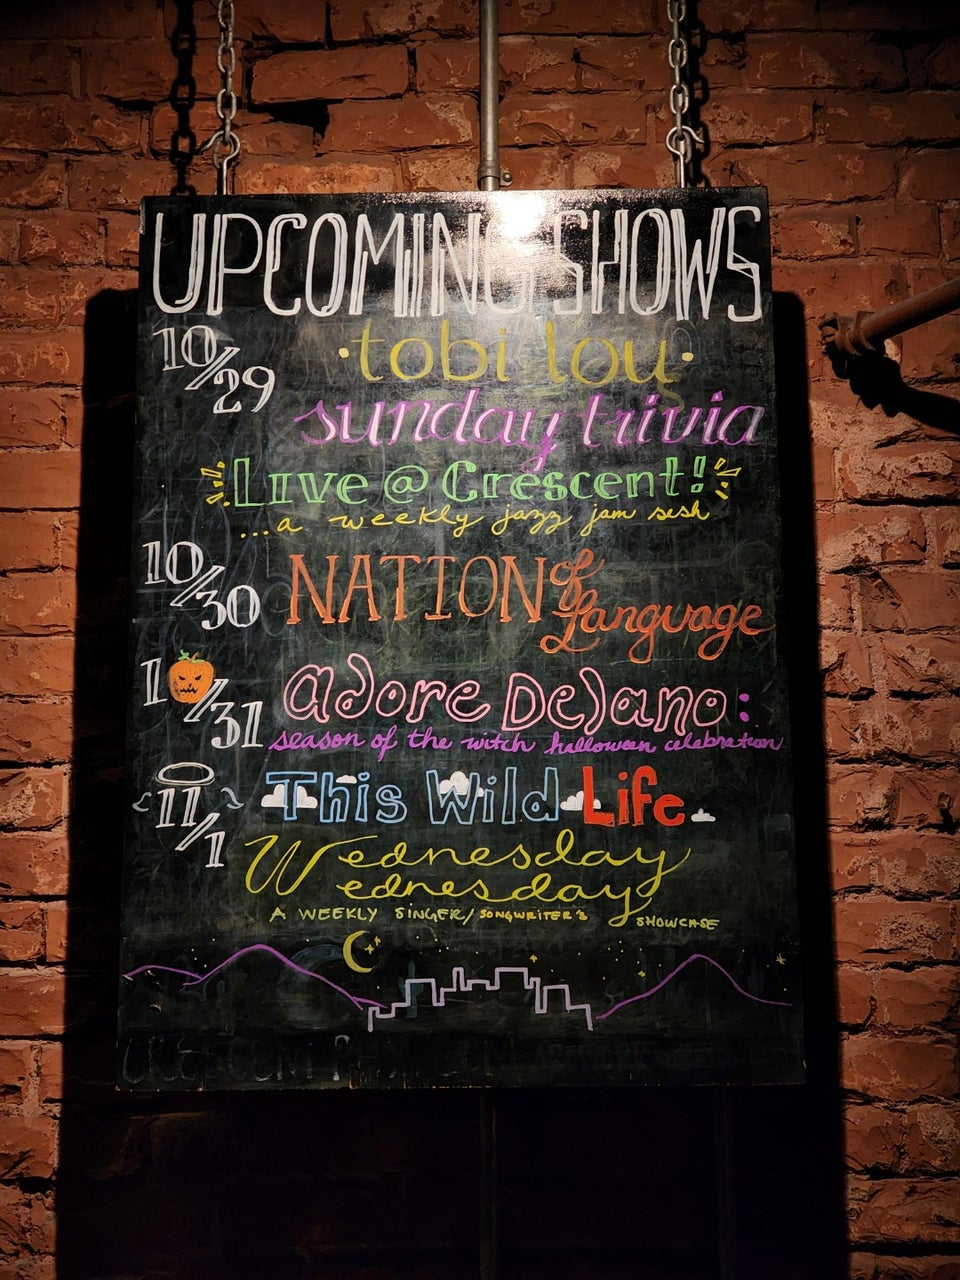 UPCOMING SHOWS
10/29 • tobi lou •
sunday trivia
Live @ Crescent!
...a weekly jazz jam sesh
10/30 NATION of Language
10/31 adore Delano:
season of the witch halloween celebration
11/1 This Wild Life
Wednesday
ednesday
A WEEKLY SINGER/SONGWRITER'S SHOWCASE
CRESCENT